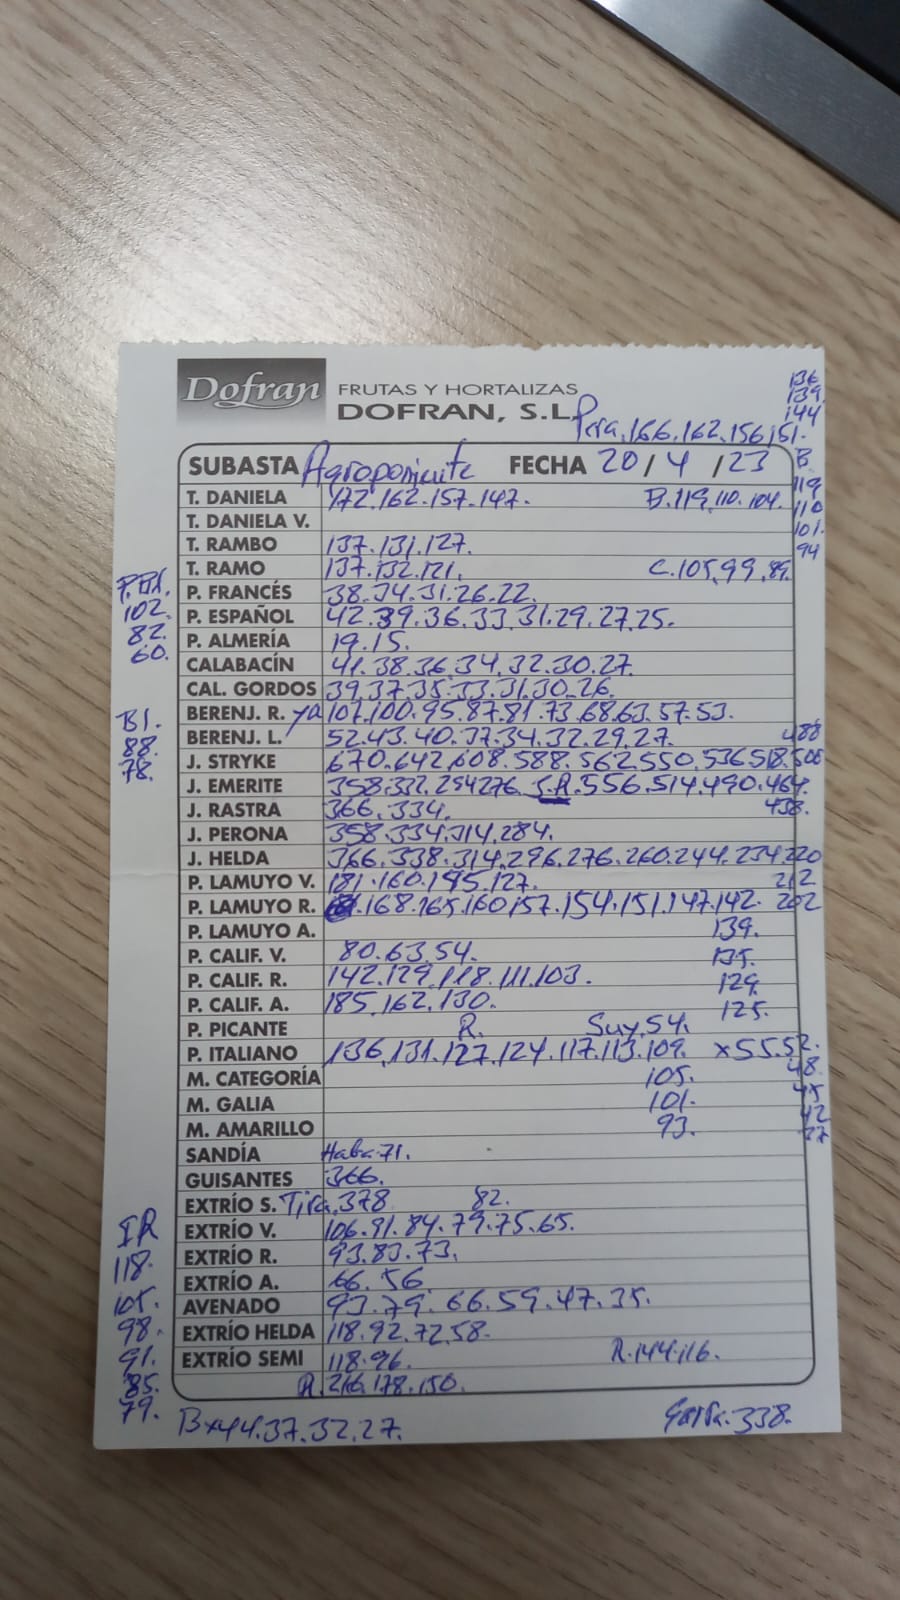 Dofran FRUTAS Y HORTALIZAS
DOFRAN, S.L.
Pera.166.162.156.151.
136
139
144
B
119
110
101.
94
SUBASTA Agroponiente FECHA 20/4/23
T. DANIELA 172.162.157.147. B.119.110.104.
T. DANIELA V.
T. RAMBO 137.131.127.
T. RAMO 137.132.121. C.105.99.89.
P. FRANCÉS 38.34.31.26.22.
P. ESPAÑOL 42.39.36.33.31.29.27.25.
P. ALMERÍA 19.15.
CALABACÍN 41.38.36.34.32.30.27.
CAL. GORDOS 39.37.35.33.31.30.26.
BERENJ. R. ya 107.100.95.87.81.73.68.63.57.53.
BERENJ. L. 52.43.40.37.34.32.29.27.
J. STRYKE 670.642.608.588.562.550.536.518.506
488
J. EMERITE 358.332.294.276. S.R.556.514.490.464.
438.
J. RASTRA 366.334.
J. PERONA 358.334.314.284.
J. HELDA 366.338.314.296.276.260.244.234.220
212
202
P. LAMUYO V. 181.160.145.127.
P. LAMUYO R. .168.165.160.157.154.151.147.142.
139.
135.
129.
125.
P. LAMUYO A.
P. CALIF. V. 80.63.54.
P. CALIF. R. 142.129.118.111.103.
P. CALIF. A. 185.162.130.
P. PICANTE R. Suy.54.
P. ITALIANO 136.131.127.124.117.113.109. x55.52.
105.
101.
93.
48.
45
42
37
M. CATEGORÍA
M. GALIA
M. AMARILLO
SANDÍA Haba.71.
GUISANTES 366.
EXTRÍO S. Tira.378 82.
EXTRÍO V. 106.91.84.79.75.65.
EXTRÍO R. 93.83.73.
EXTRÍO A. 66.56
AVENADO 93.79.66.59.47.35.
EXTRÍO HELDA 118.92.72.58.
EXTRÍO SEMI 118.96. R.144.116.
R.216.178.150.
Bx44.37.32.27.
338.
102.
82.
60.
B1.
88.
78.
IR
118.
105.
98.
91.
85.
79.